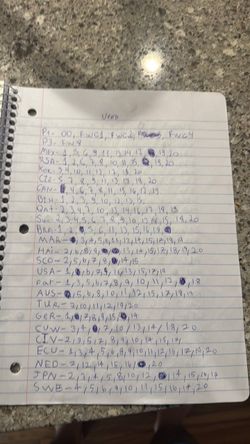 USED
P1- 00, FWC1, FWC2, FWC4
P3- FW8
MEX- 1, 5, 6, 9, 11, 13, 14, 17, 19, 20
RSA- 1, 2, 6, 7, 8, 10, 11, 15, 19, 20
KOR- 3, 4, 10, 11, 12, 17, 18, 20
CZE- 5, 7, 8, 9, 11, 13, 15, 18, 20
CAN- 4, 6, 7, 8, 11, 15, 16, 17, 19
BIH- 1, 2, 3, 9, 10, 12, 13, 15
QAT- 2, 3, 4, 7, 10, 13, 14, 16, 17, 18, 19
SUI- 2, 3, 4, 5, 6, 7, 8, 9, 10, 13, 15, 19, 20
BRA- 1, 2, 5, 6, 11, 13, 15, 16, 19
MAR- 3, 4, 5, 11, 12, 14, 15, 17, 18, 19
HAI- 2, 6, 8, 9, 13, 14, 15, 16, 17, 18, 19, 20
SCO- 2, 5, 6, 7, 8, 14, 15
USA- 1, 6, 7, 9, 16, 13, 15, 17, 19
PAR- 1, 3, 5, 6, 7, 8, 9, 10, 11, 12, 18
AUS- 5, 6, 8, 10, 11, 12, 15, 17, 18, 19
TUR- 7, 10, 11, 12, 19, 20
GER- 1, 7, 8, 9, 15, 19
CUW- 3, 4, 7, 10, 13, 14, 18, 20
CIV- 2, 3, 5, 7, 8, 9, 10, 14, 15, 17
ECU- 1, 3, 4, 5, 6, 8, 9, 10, 11, 12, 15, 17, 18, 20
NED- 7, 12, 14, 15, 16, 20
JPN- 2, 3, 4, 5, 8, 10, 12, 14, 15, 16, 17
SWE- 4, 5, 6, 9, 10, 11, 15, 16, 17, 20